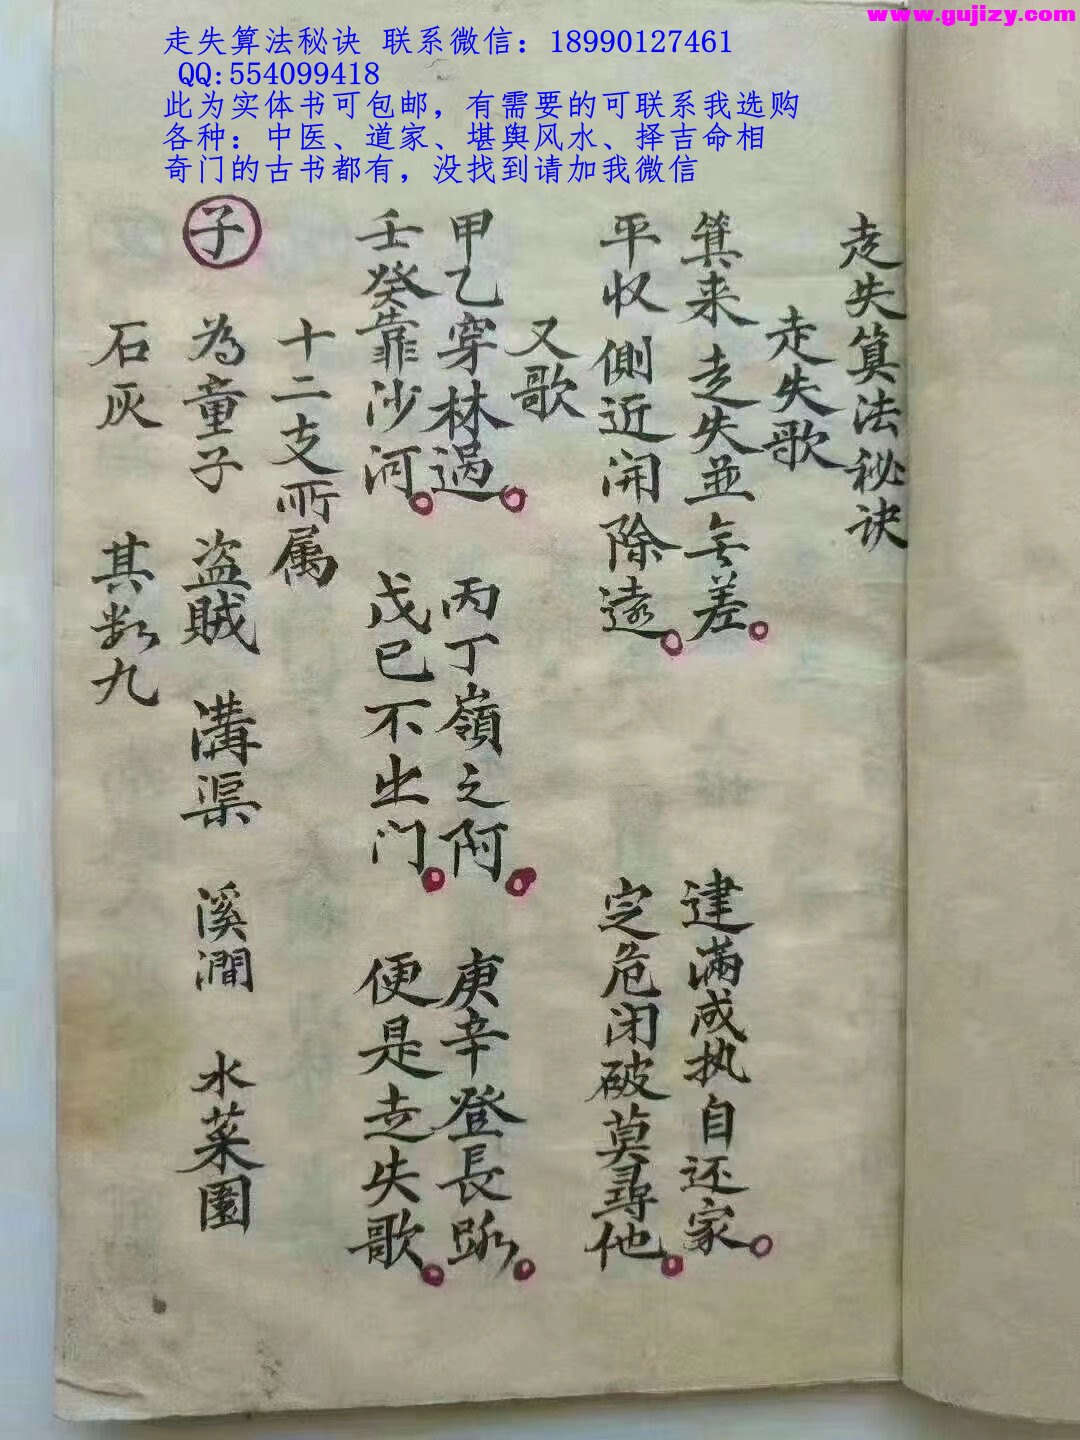 www.gujizy.com
走失算法秘诀 联系微信：18990127461
QQ:554099418
此为实体书可包邮，有需要的可联系我选购
各种：中医、道家、堪舆风水、择吉命相
奇门的古书都有，没找到请加我微信
走失算法秘诀
走失歌
算来走失並無差。 建满成执自还家。
平収側近開除遠。 定危闭破莫尋他。
又歌
甲乙穿林過。 丙丁嶺之阿。 庚辛登長路。
壬癸靠沙河。 戊己不出门。 便是走失歌。
十二支所属
子 為童子 盗賊 溝渠 溪澗 水菜園
石灰 其数九